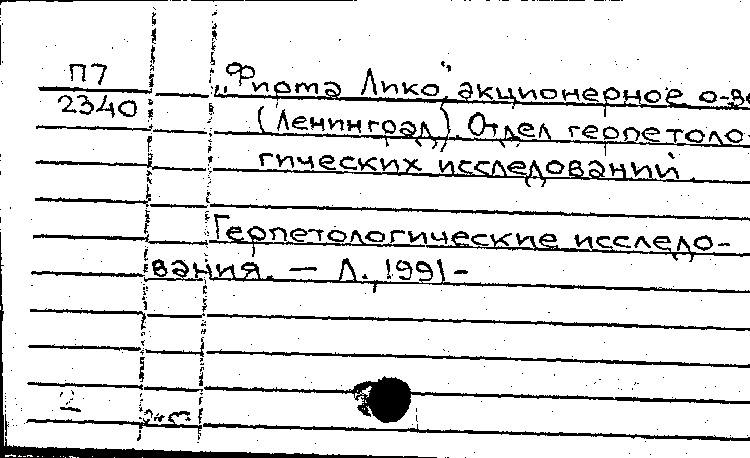 П7
2340
„Фирма Лико", акционерное о-во
(Ленинград). Отдел герпетоло-
гических исследований.
Герпетологические исследо-
вания. — Л., 1991-
2